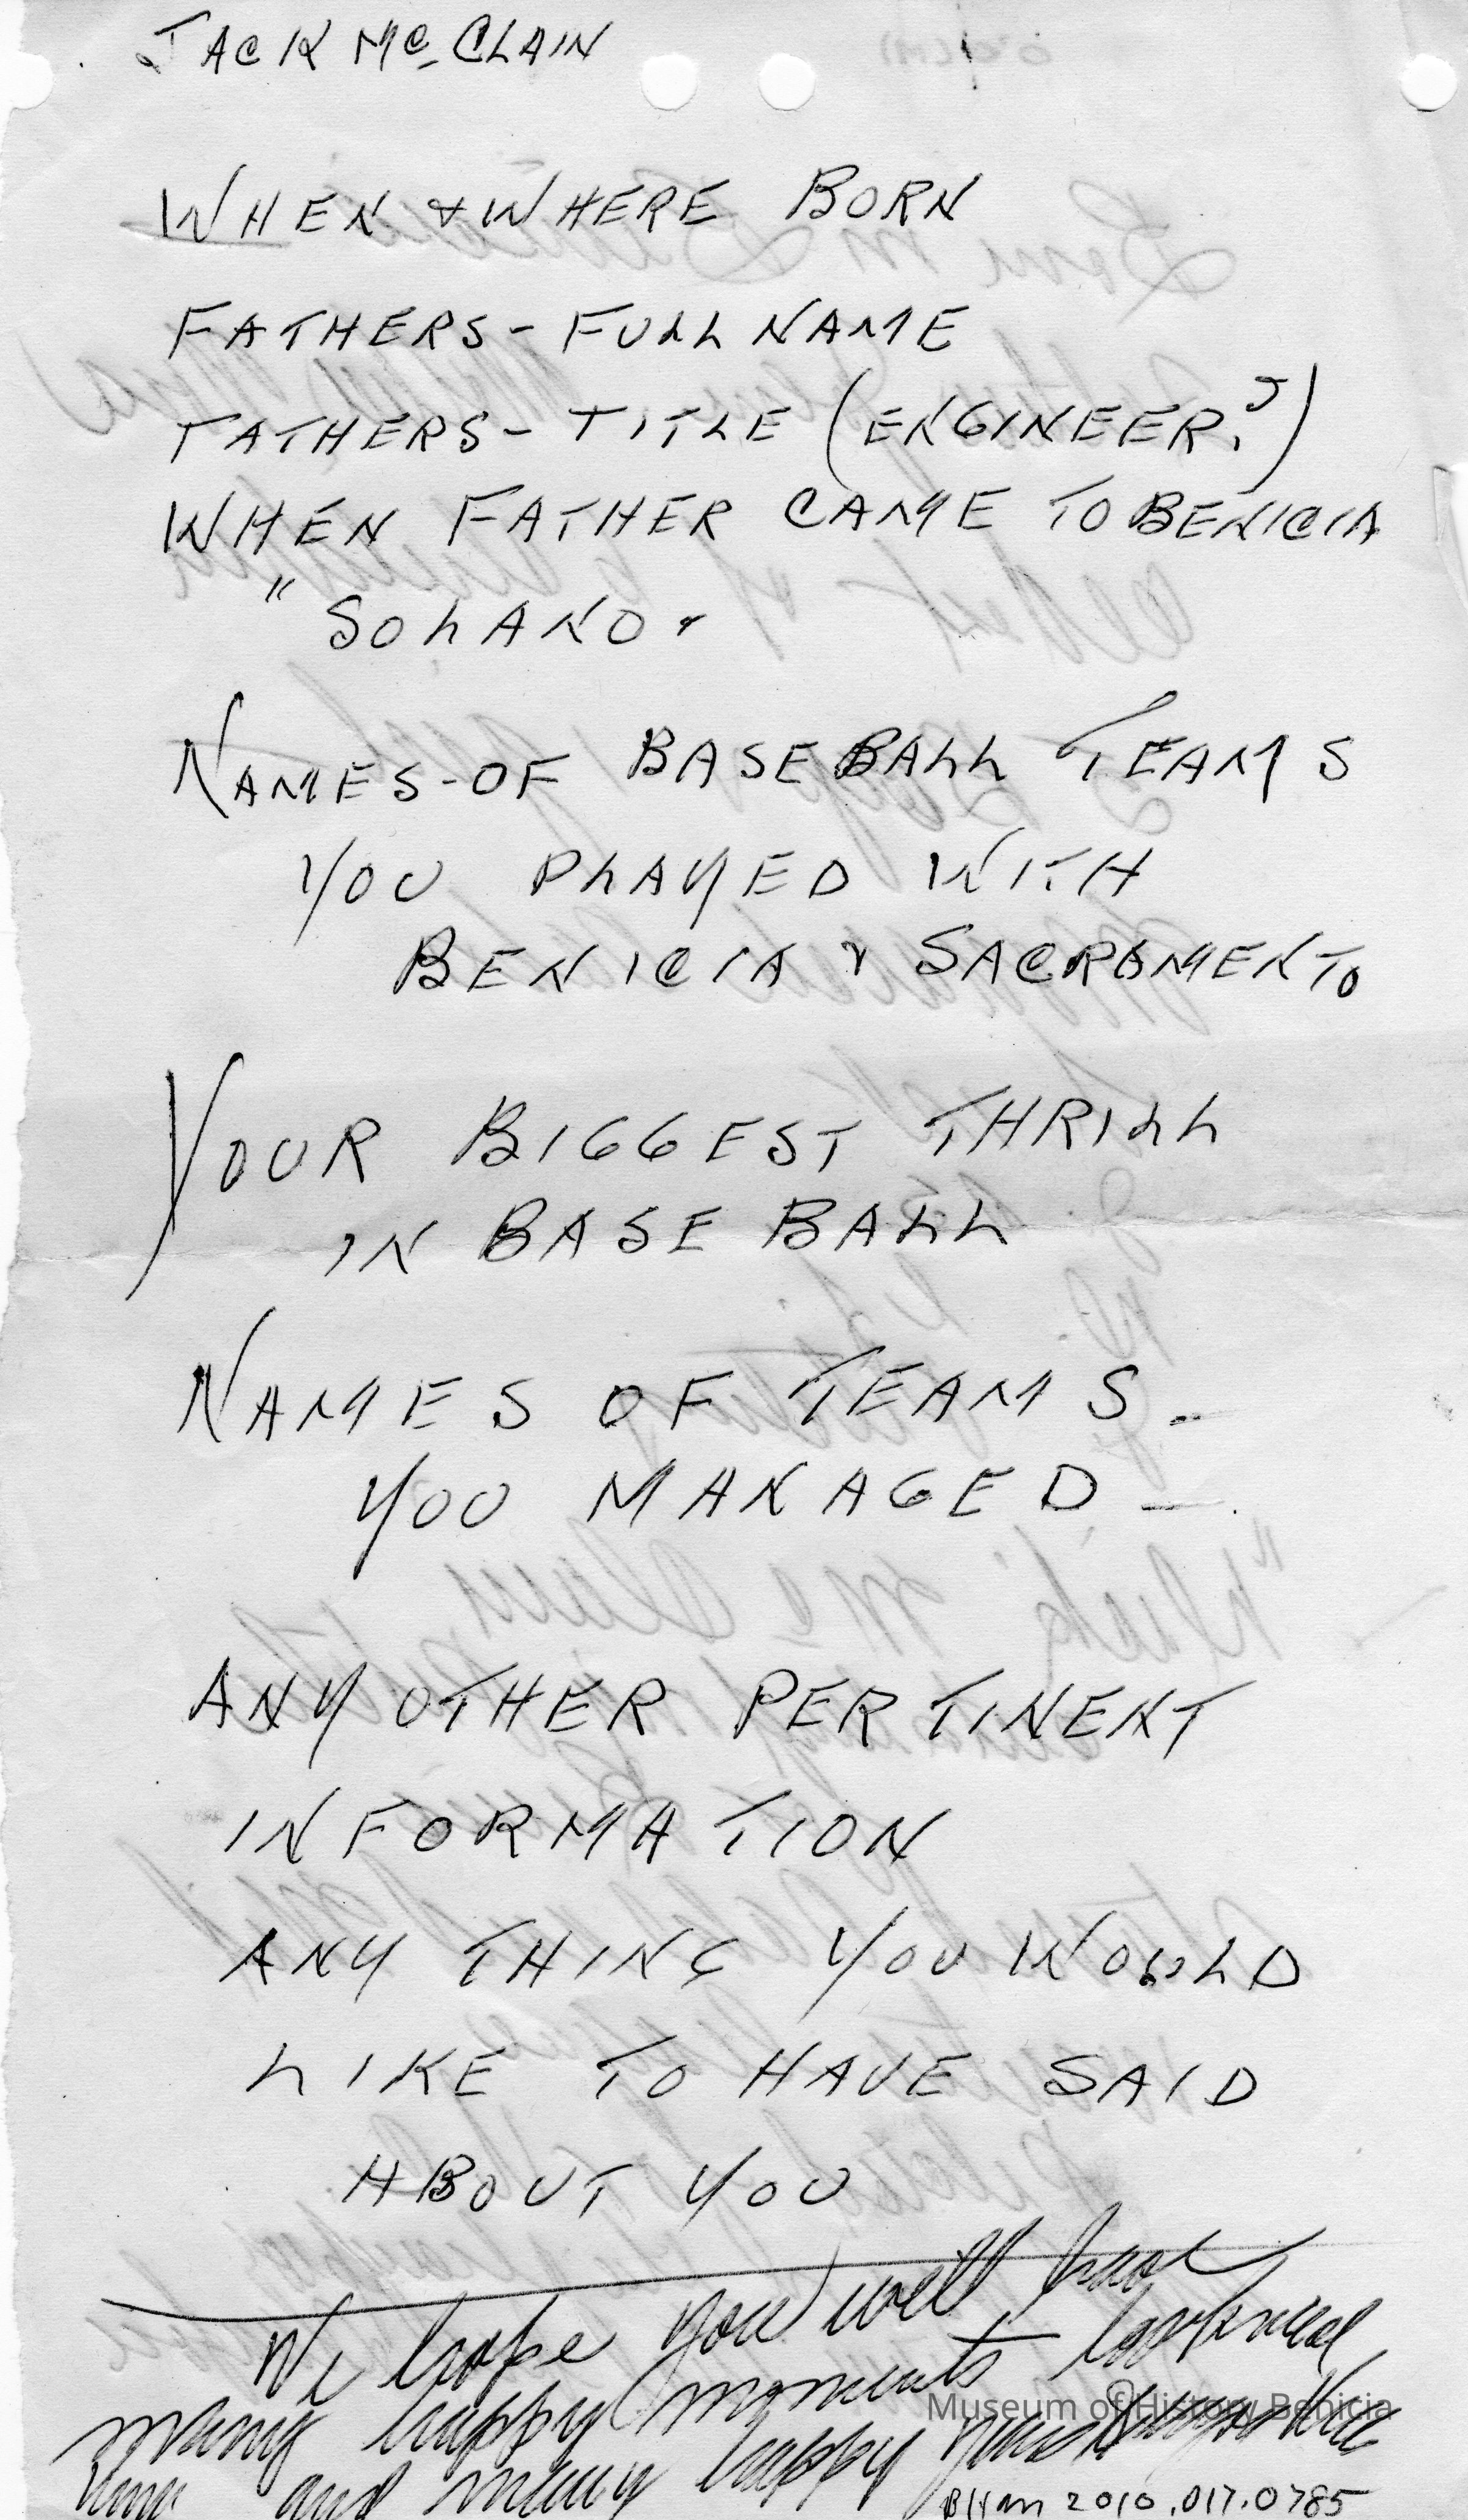 JACK Mc CLAIN
WHEN & WHERE BORN
FATHERS - FULL NAME
FATHERS - TITLE (ENGINEER?)
WHEN FATHER CAME TO BENICIA
" SOLANO.
NAMES-OF BASEBALL TEAMS
YOU PLAYED WITH
BENICIA & SACRAMENTO
YOUR BIGGEST THRILL
IN BASE BALL
NAMES OF TEAMS -
YOU MANAGED -
ANY OTHER PERTINENT
INFORMATION
ANY THING YOU WOULD
LIKE TO HAVE SAID
ABOUT YOU
We hope you will have
many happy moments
and many happy years
Museum of History Benicia
BHM 2010.017.0785